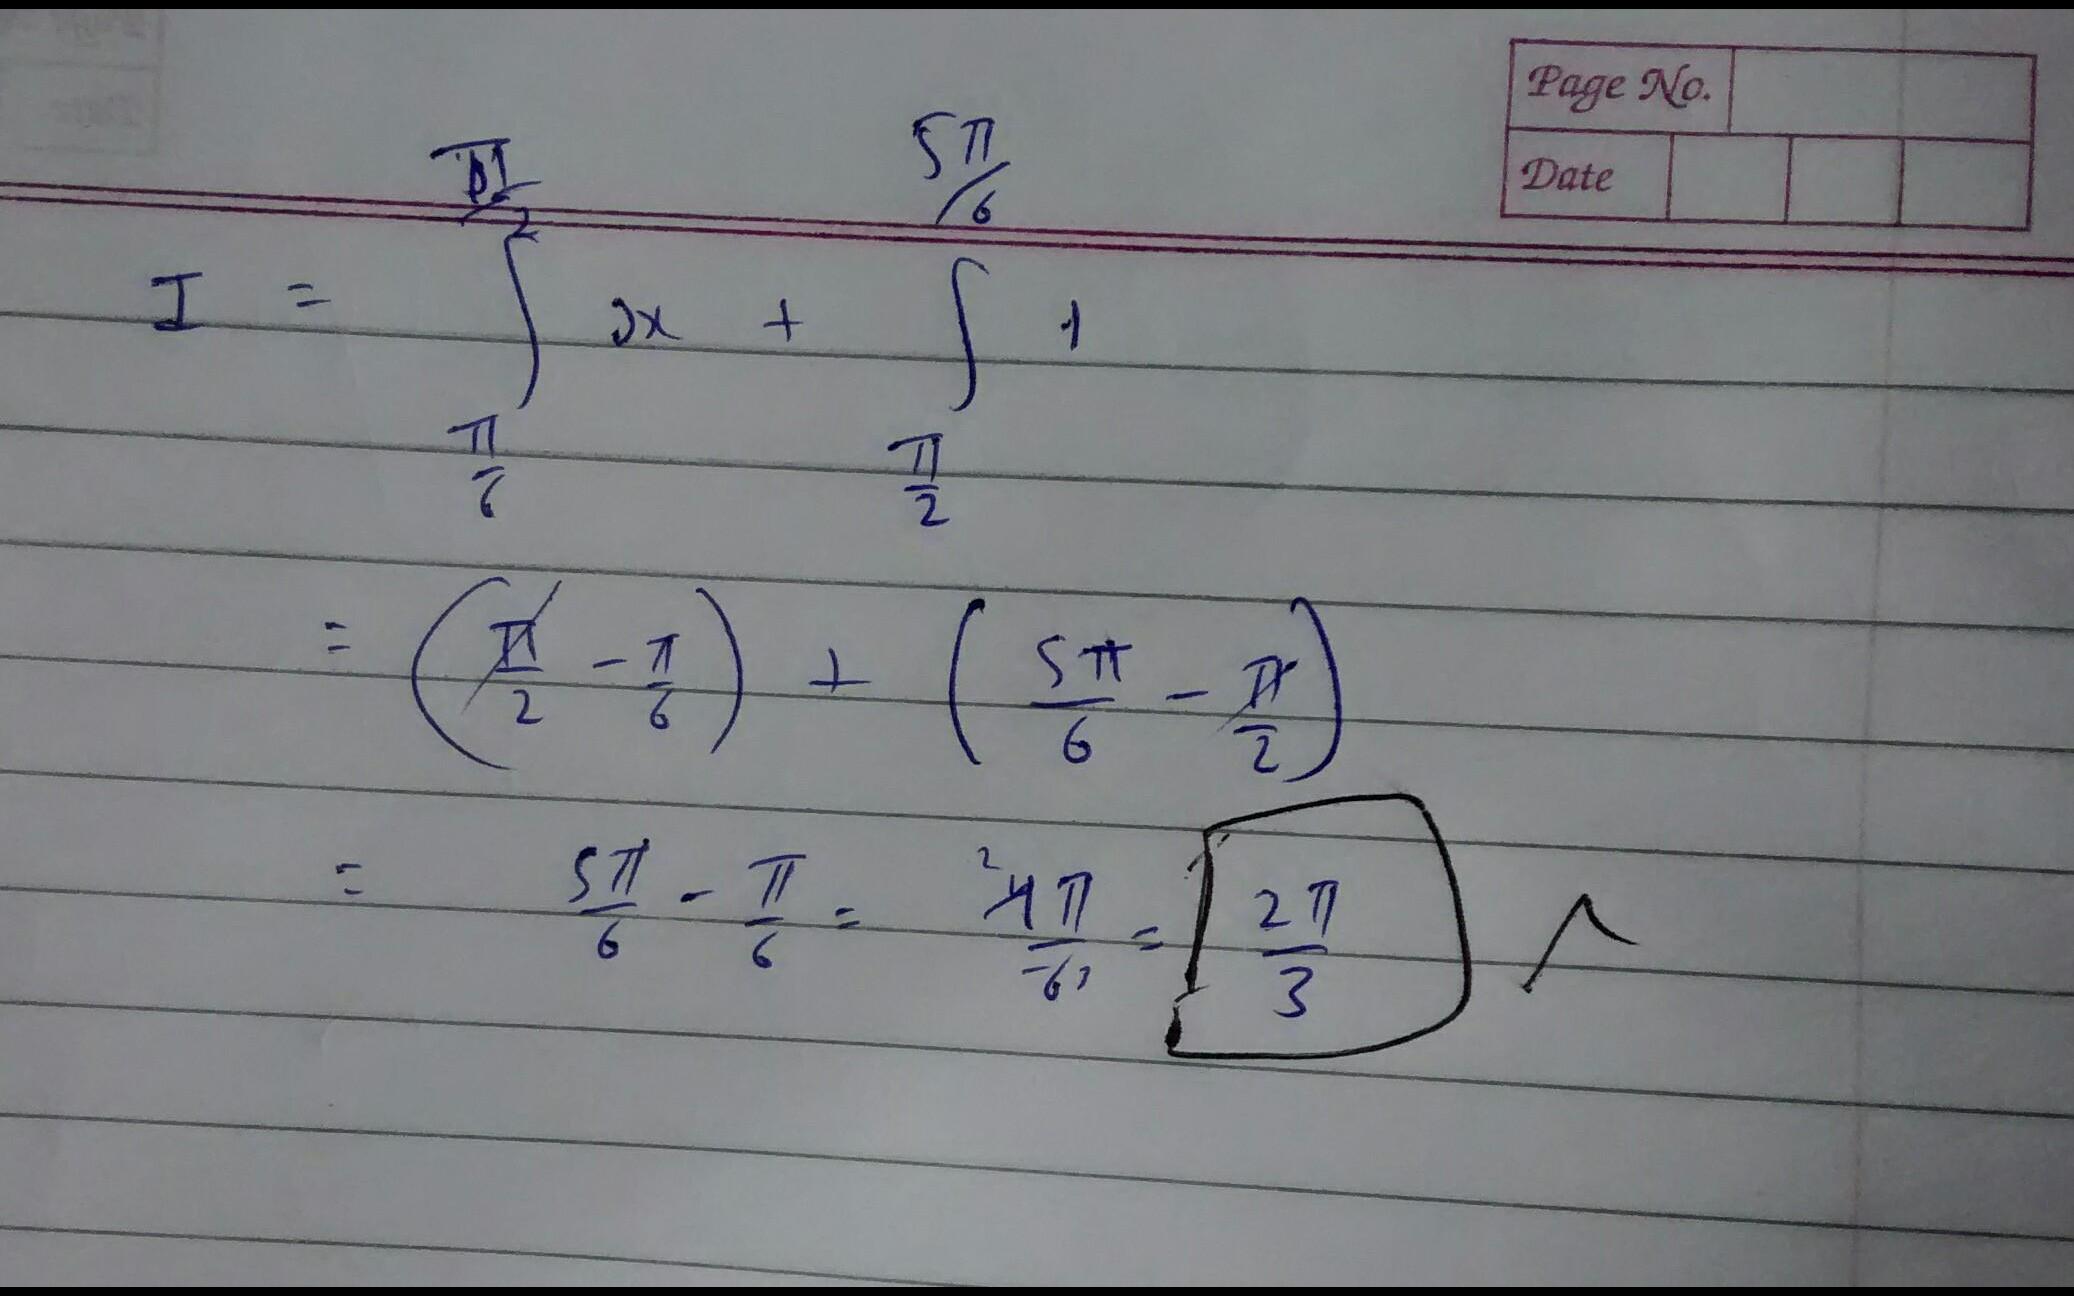 Page No.
Date
I = ∫_{π/6}^{π/2} dx + ∫_{π/2}^{5π/6} 1
= (π/2 - π/6) + (5π/6 - π/2)
= 5π/6 - π/6 = 4π/6 = 2π/3